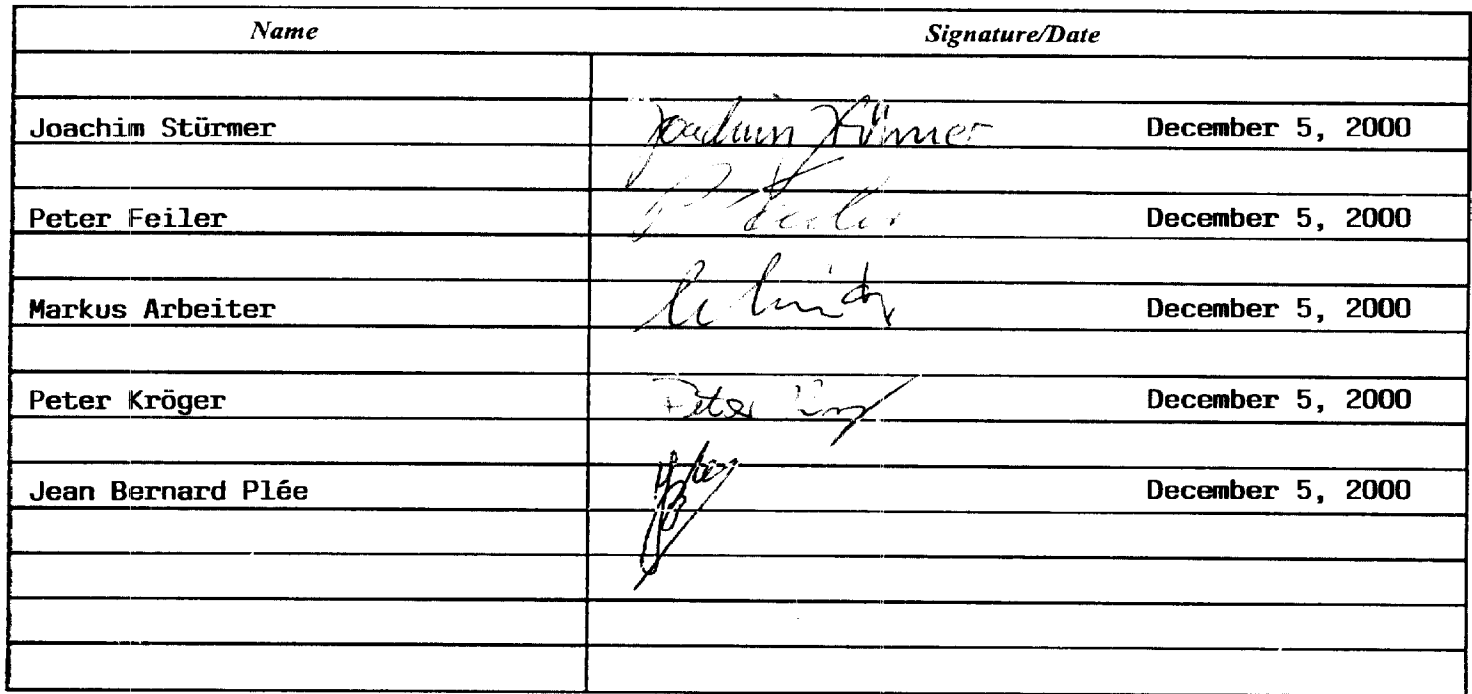 Name Signature/Date
Joachim Stürmer Joachim Stürmer December 5, 2000
Peter Feiler P. Feiler December 5, 2000
Markus Arbeiter December 5, 2000
Peter Kröger Peter December 5, 2000
Jean Bernard Plée December 5, 2000